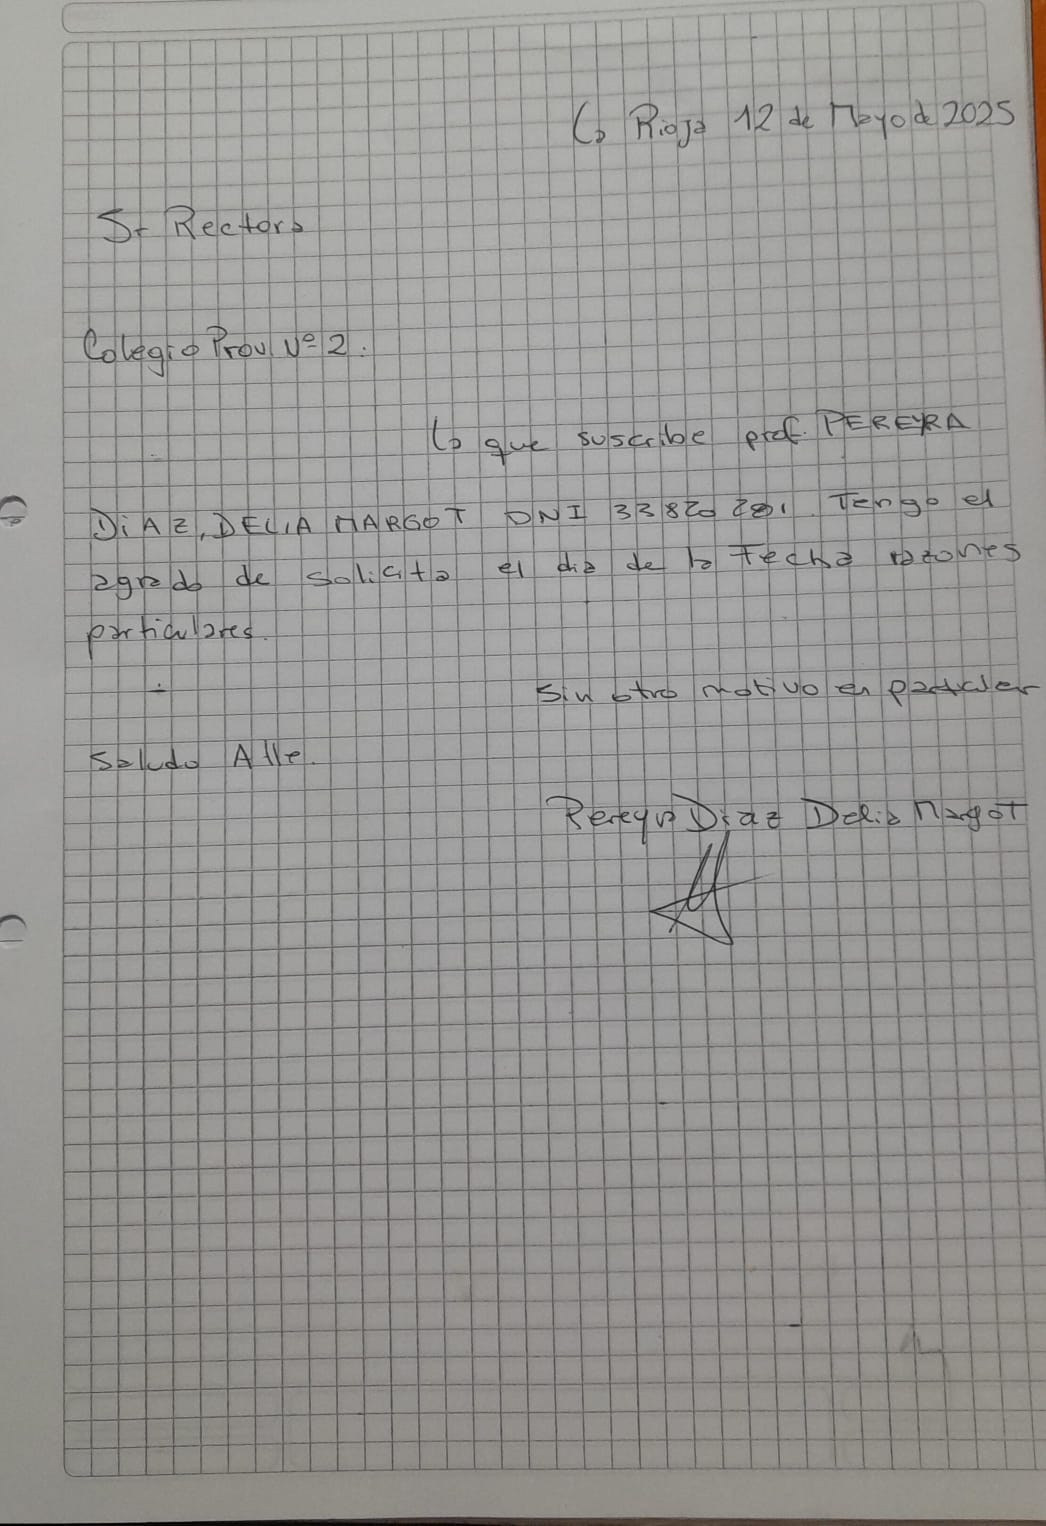 La Rioja 12 de Mayo de 2025
Sr Rectora
Colegio Prov Nº 2.
La que suscribe prof. PEREYRA
DiAZ, DELIA MARGOT DNI 33820 . Tengo el
agrado de solicita el dia de la Fecha razones
particulares.
Sin otro motivo en particular
Saludo Atte.
Pereyra Diaz Delia Margot